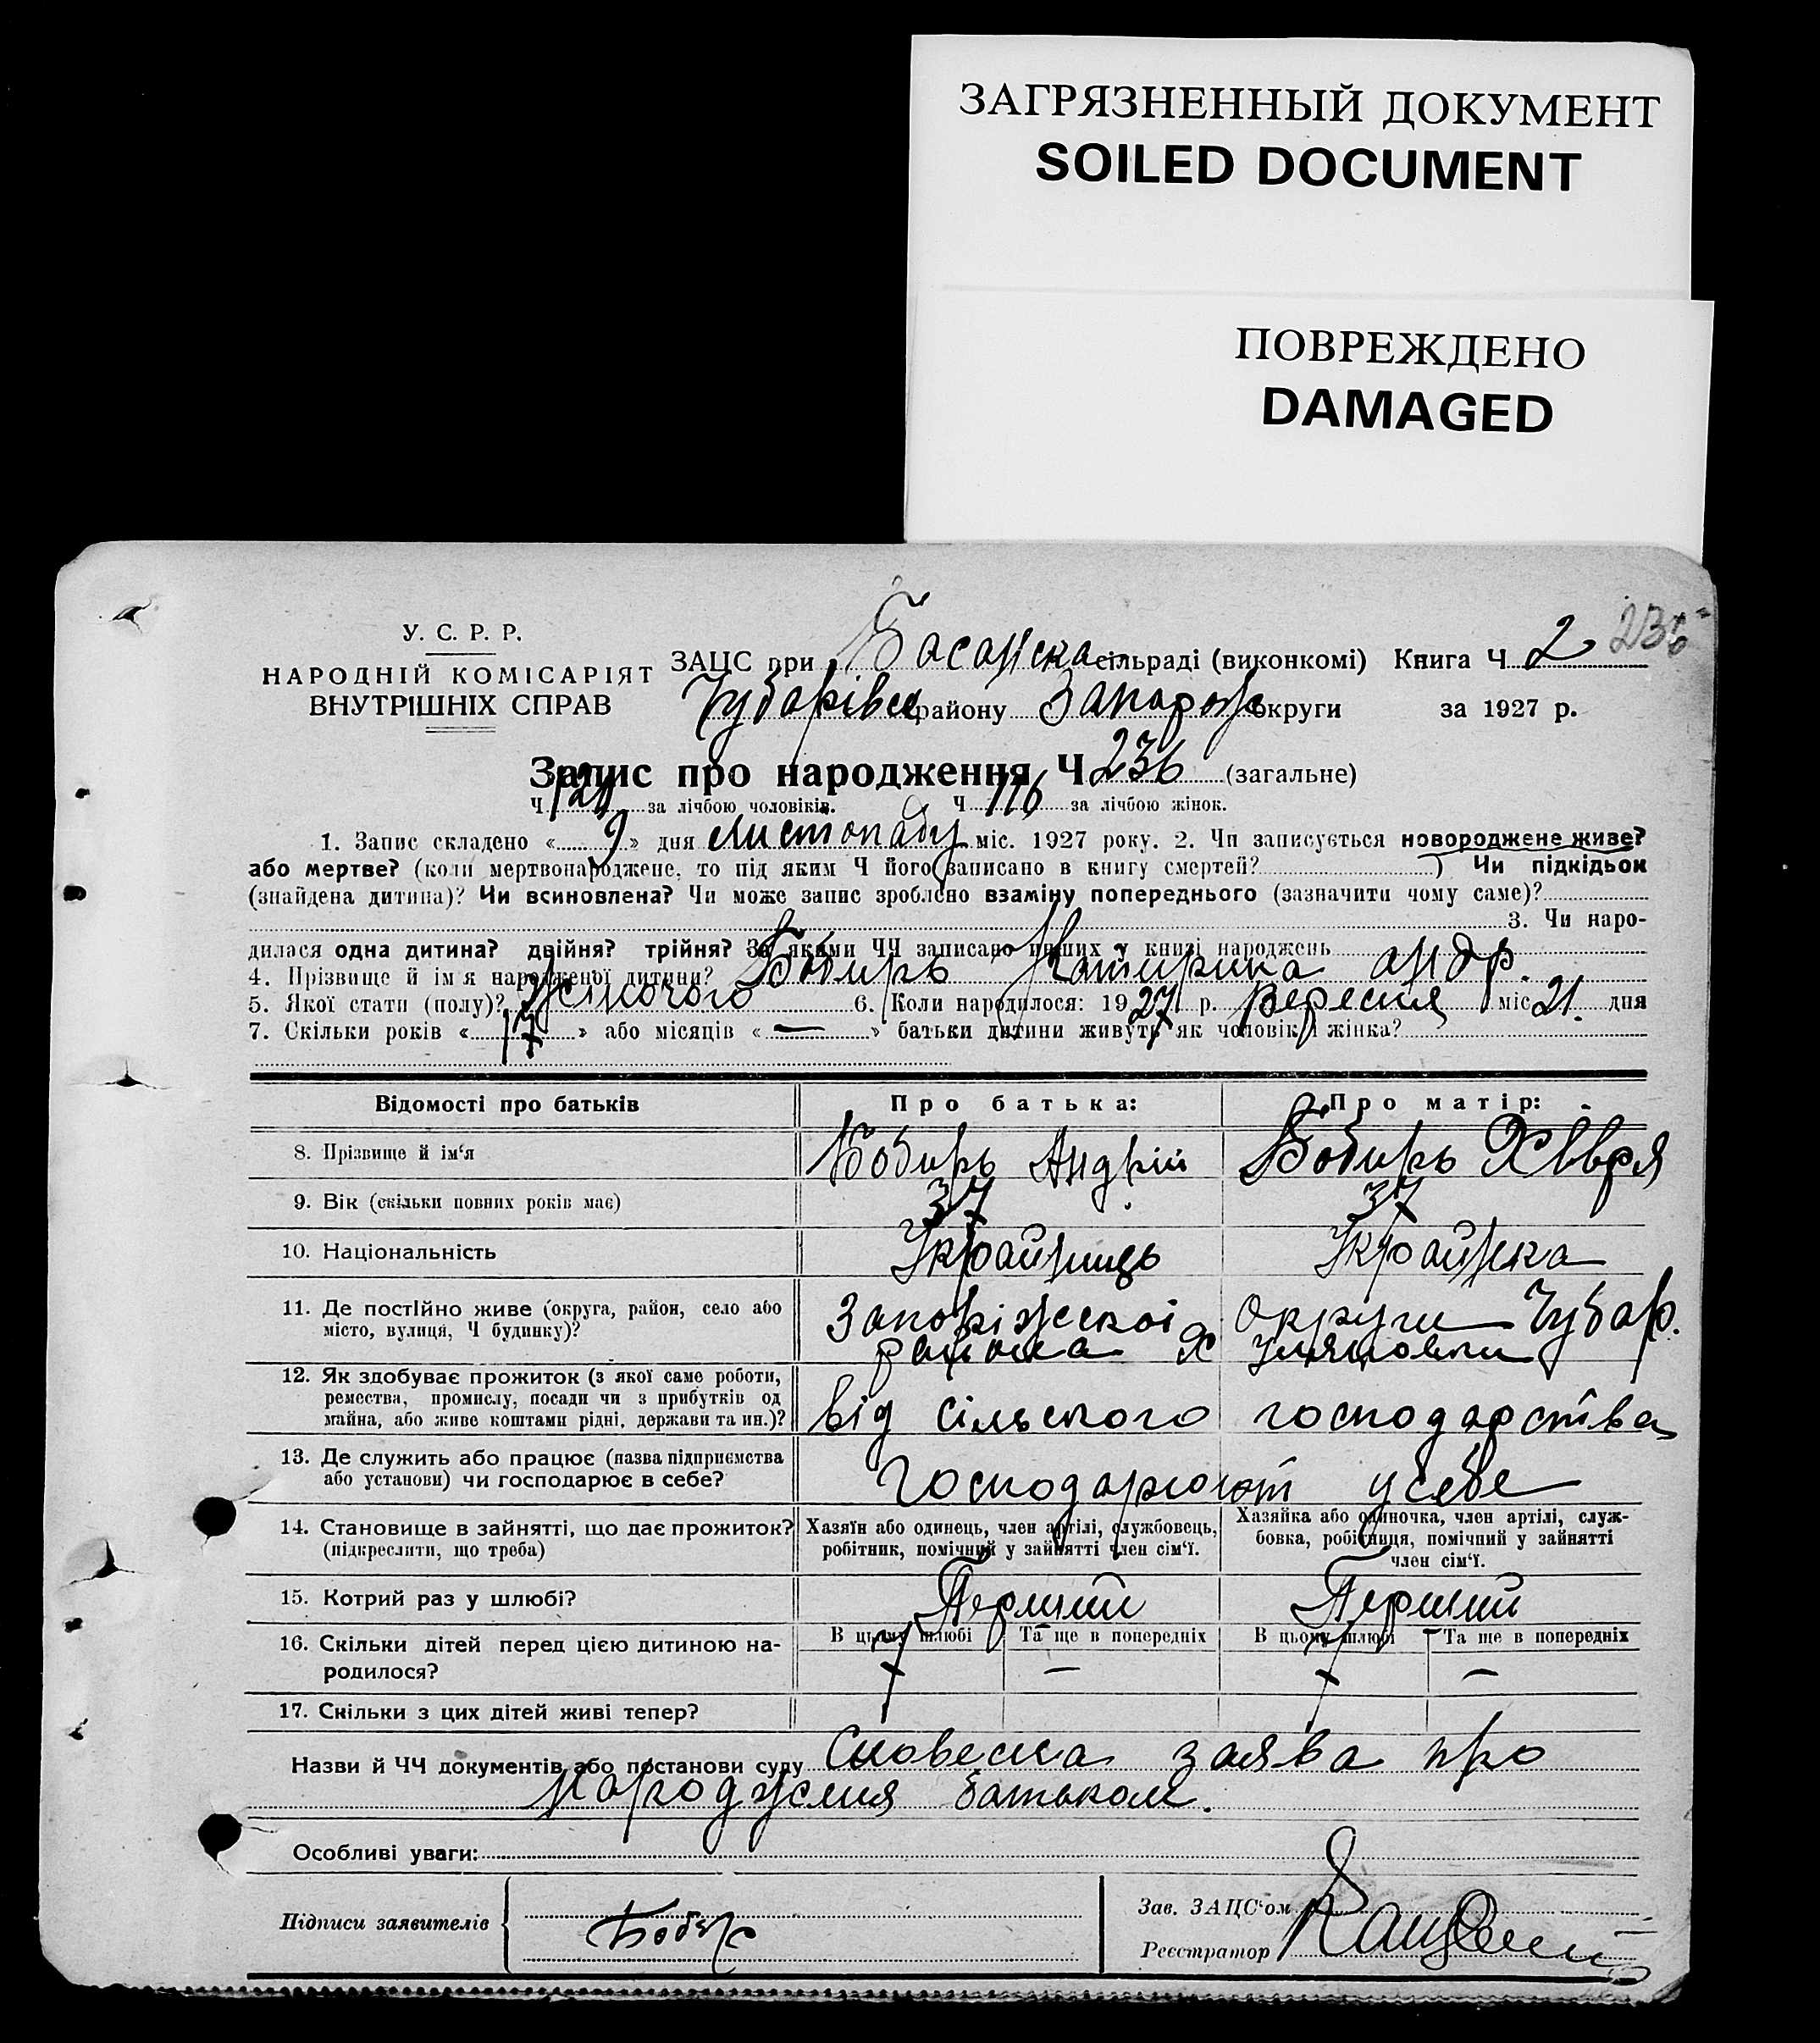 ЗАГРЯЗНЕННЫЙ ДОКУМЕНТ
SOILED DOCUMENT
ПОВРЕЖДЕНО
DAMAGED
236
У. С. Р. Р.
НАРОДНІЙ КОМІСАРІЯТ
ВНУТРІШНІХ СПРАВ
ЗАЦС при Басанска сільраді (виконкомі) Книга Ч 2
району Запорож округи за 1927 р.
Запис про народження Ч 236 (загальне)
Ч 120 за лічбою чоловіків. Ч 116 за лічбою жінок.
1. Запис складено « 9 » дня листопаду міс. 1927 року. 2. Чи записується новороджене живе?
або мертве? (коли мертвонароджене, то під яким Ч його записано в книгу смертей? ) Чи підкідьок
(знайдена дитина)? Чи всиновлена? Чи може запис зроблено взаміну попереднього (зазначити чому саме)?
3. Чи наро-
дилася одна дитина? двійня? трійня? За якими ЧЧ записано инших у книзі народжень
4. Прізвище й ім'я народженої дитини? Бобирь Катирина Андр.
5. Якої стати (полу)? Жіночого 6. Коли народилося: 1927 р. вересня міс 21. дня
7. Скільки років « 17 » або місяців « — » батьки дитини живуть як чоловік і жінка?
Відомості про батьків Про батька: Про матір:
8. Прізвище й ім'я Бобирь Андрій Бобирь Хівря
9. Вік (скільки повних років має) 37 37
10. Національність Українець Українка
11. Де постійно живе (округа, район, село або Запоріжської округи Чубар.
місто, вулиця, Ч будинку)? района
12. Як здобуває прожиток (з якої саме роботи,
ремества, промислу, посади чи з прибутків од
майна, або живе коштами рідні, держави та ин.)? від сільського господарства
13. Де служить або працює (назва підприємства
або установи) чи господарює в себе? Господарюют у себе
14. Становище в зайнятті, що дає прожиток? Хазяїн або одинець, член артілі, службовець, Хазяйка або одиночка, член артілі, служ-
(підкреслити, що треба) робітник, помічний у зайнятті член сім'ї. бовка, робітниця, помічний у зайнятті
член сім'ї.
15. Котрий раз у шлюбі? Перший Перший
16. Скільки дітей перед цією дитиною на- В цьому шлюбі Та ще в попередніх В цьому шлюбі Та ще в попередніх
родилося? 7 — 7 —
17. Скільки з цих дітей живі тепер?
Назви й ЧЧ документів або постанови суду Словесна заява про
народження батьком.
Особливі уваги:
Підписи заявителів Бобир
Зав. ЗАЦС'ом
Реєстратор